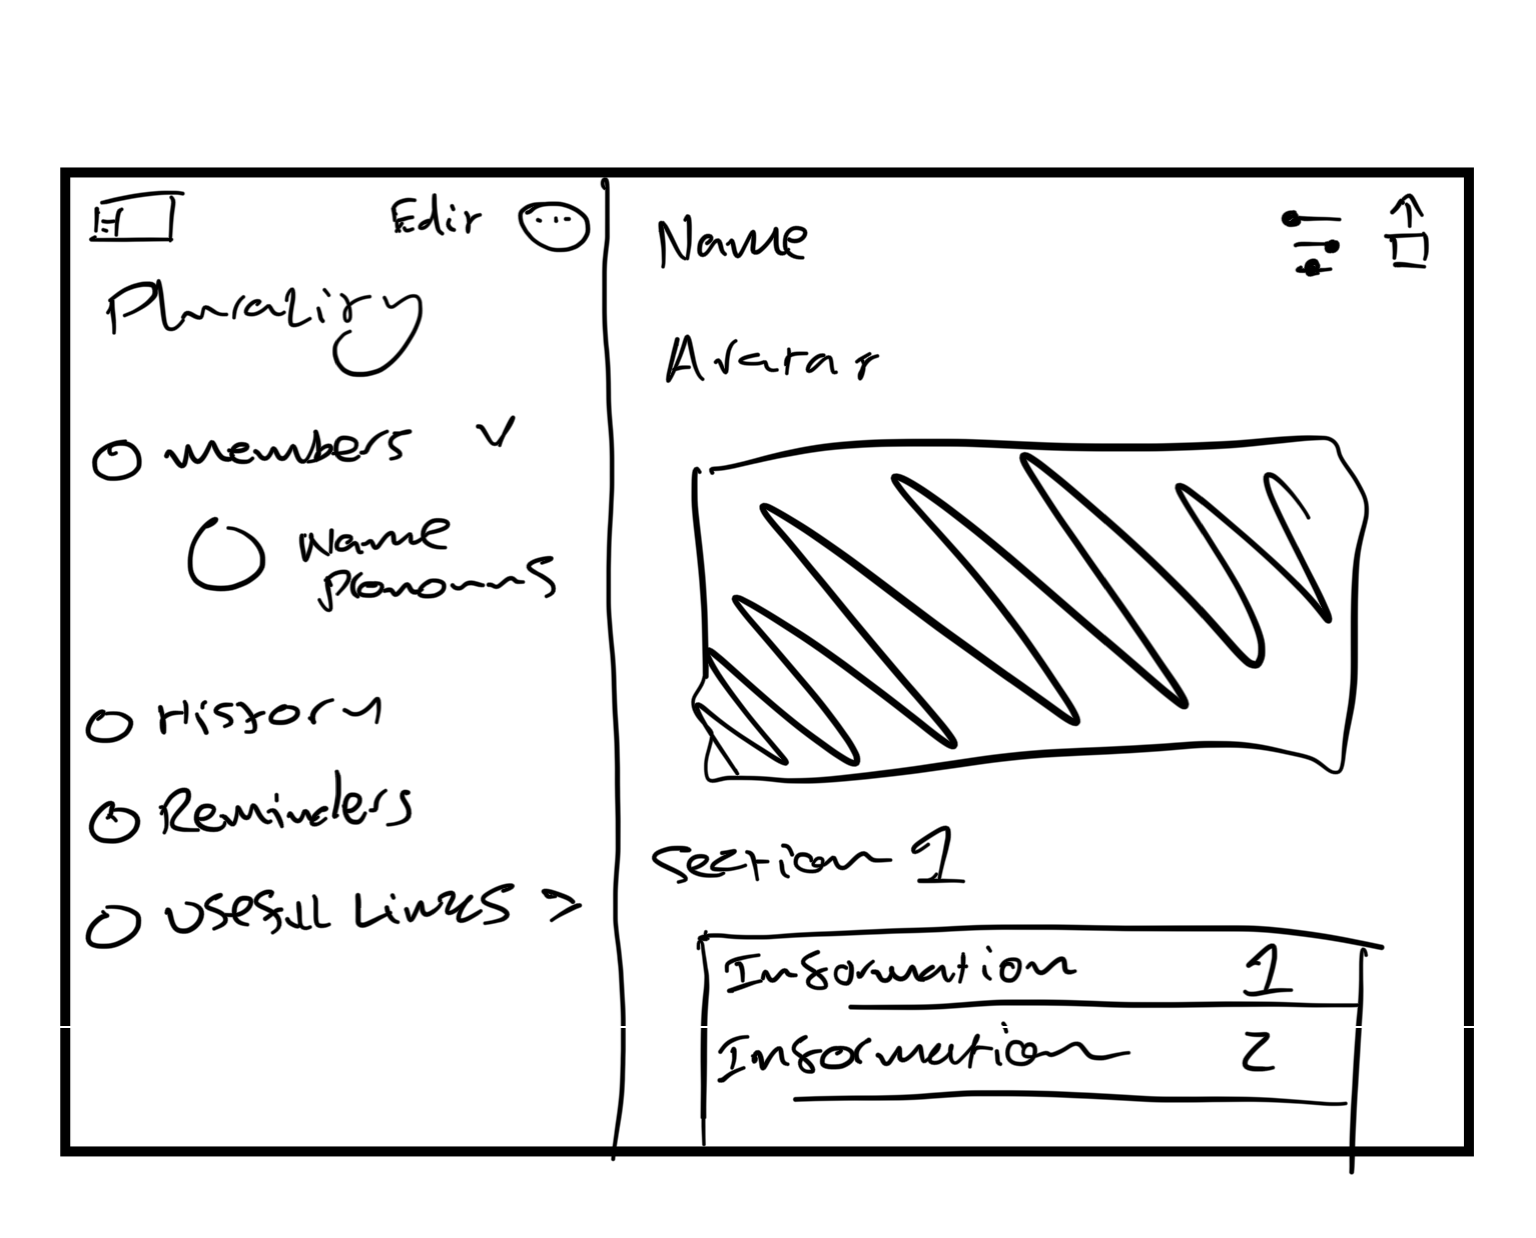 Edit
Plurality
members
Name
pronouns
History
Reminders
Usefull Links
Name
Avatar
Section 1
Information 1
Information 2